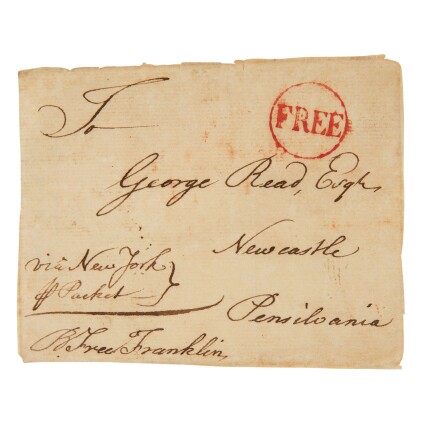 To
FREE
George Read, Esqr,
Newcastle
via New York
Packet
Pensilvania
B Free Franklin,